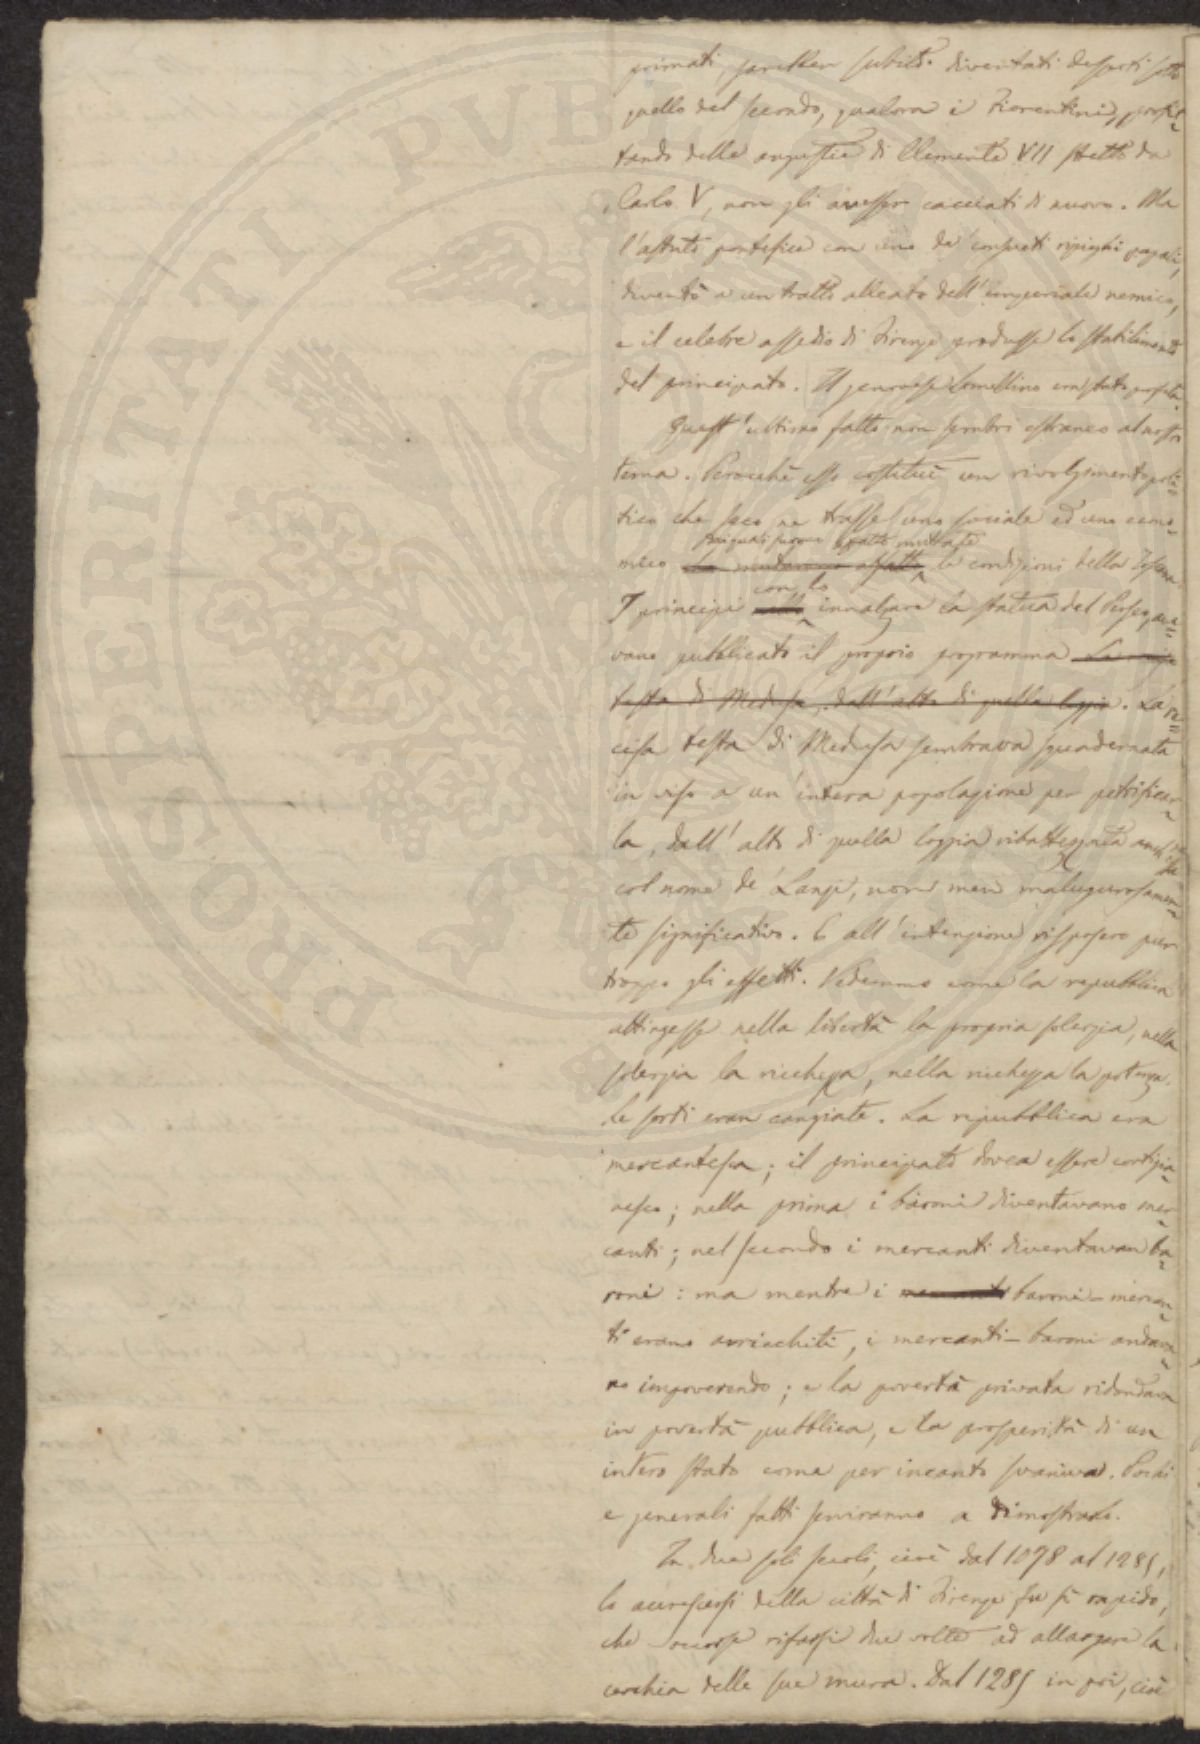 primati, sarebber subito diventati despoti sotto
quello del secondo, qualora i Fiorentini, profit-
tando delle angustie di Clemente VII stretto da
Carlo V, non gli avesser cacciati di nuovo. Ma
l'astuto pontefice con uno de' consueti ripieghi papali,
diventò a un tratto alleato dell'imperiale nemico,
e il celebre assedio di Firenze produsse lo stabilimento
del principato. Il genovese Lomellino era stato profeta.
Quest'ultimo fatto non sembri estraneo al nostro
tema. Perocchè esso costituì un rivolgimento poli-
tico che seco ne trasse uno sociale ed uno econo-
pei quali furono affatto mutate
mico le condizioni della Toscana.
con lo
I principi innalzare la statua del Perseo, ave-
vano pubblicato il proprio programma La
testa di Medusa, dall'alto di quella loggia. La re-
cisa testa di Medusa sembrava squadernata
in viso a un'intera popolazione per petrificar-
la, dall'alto di quella loggia ribattezzata
col nome de' Lanzi, non men malaugurosamen-
te significativo. E all'intenzione risposero pur
troppo gli effetti. Vedemmo come la repubblica
attingesse nella libertà la propria solerzia, nella
solerzia la ricchezza, nella ricchezza la potenza.
Le sorti eran cangiate. La repubblica era
mercantesca; il principato dovea essere cortigia-
nesco; nella prima i baroni diventavano mer-
canti; nel secondo i mercanti diventavan ba-
roni: ma mentre i mercanti baroni-mercan-
ti erano arricchiti, i mercanti-baroni andava-
no impoverendo; e la povertà privata ridondava
in povertà pubblica, e la prosperità di un
intero stato come per incanto svaniva. Pochi
e generali fatti serviranno a dimostrarlo.
In due soli secoli, cioè dal 1078 al 1285,
lo accrescersi della città di Firenze fu sì rapido,
che occorse rifarsi due volte ad allargare la
cerchia delle sue mura. Dal 1285 in poi, cioè
PROSPERITATI PUBLICAE